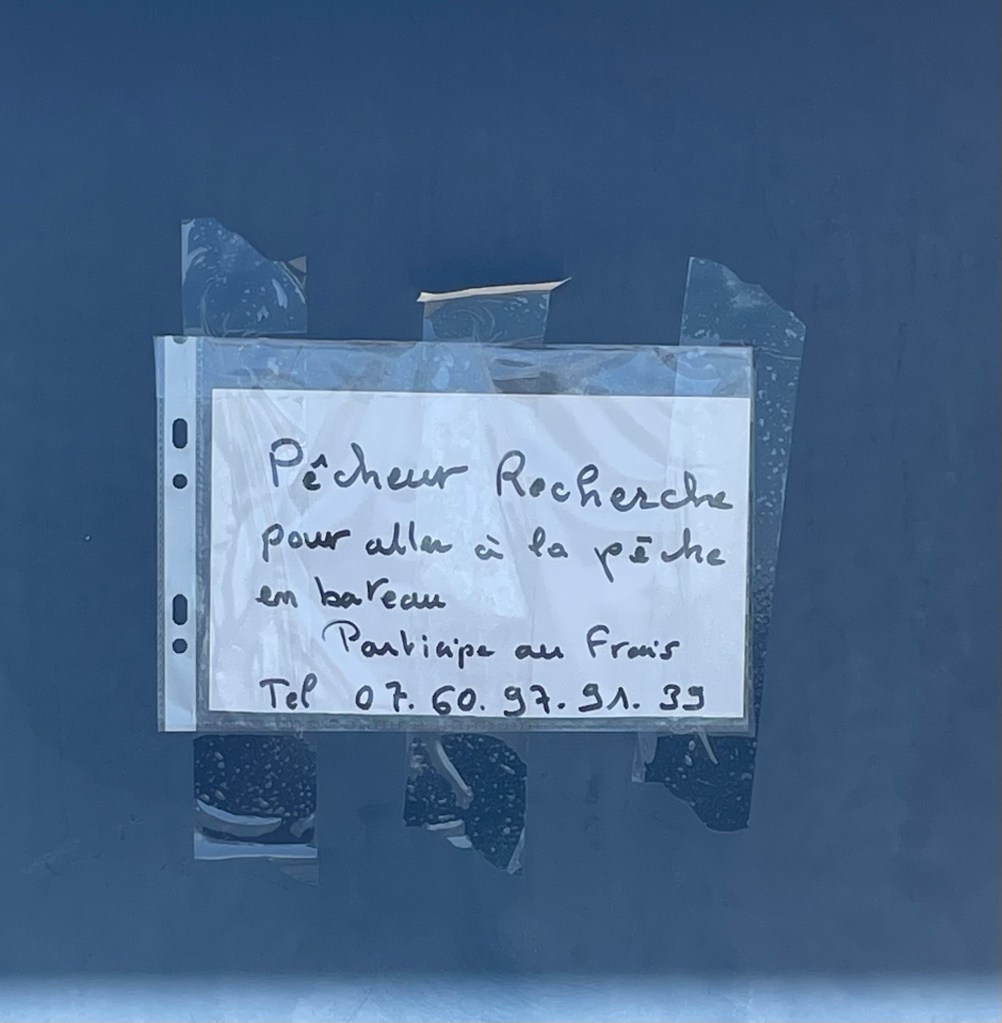 Pêcheur Recherche
pour aller à la pêche
en bateau
Participe au Frais
Tel 07.60.97.91.39